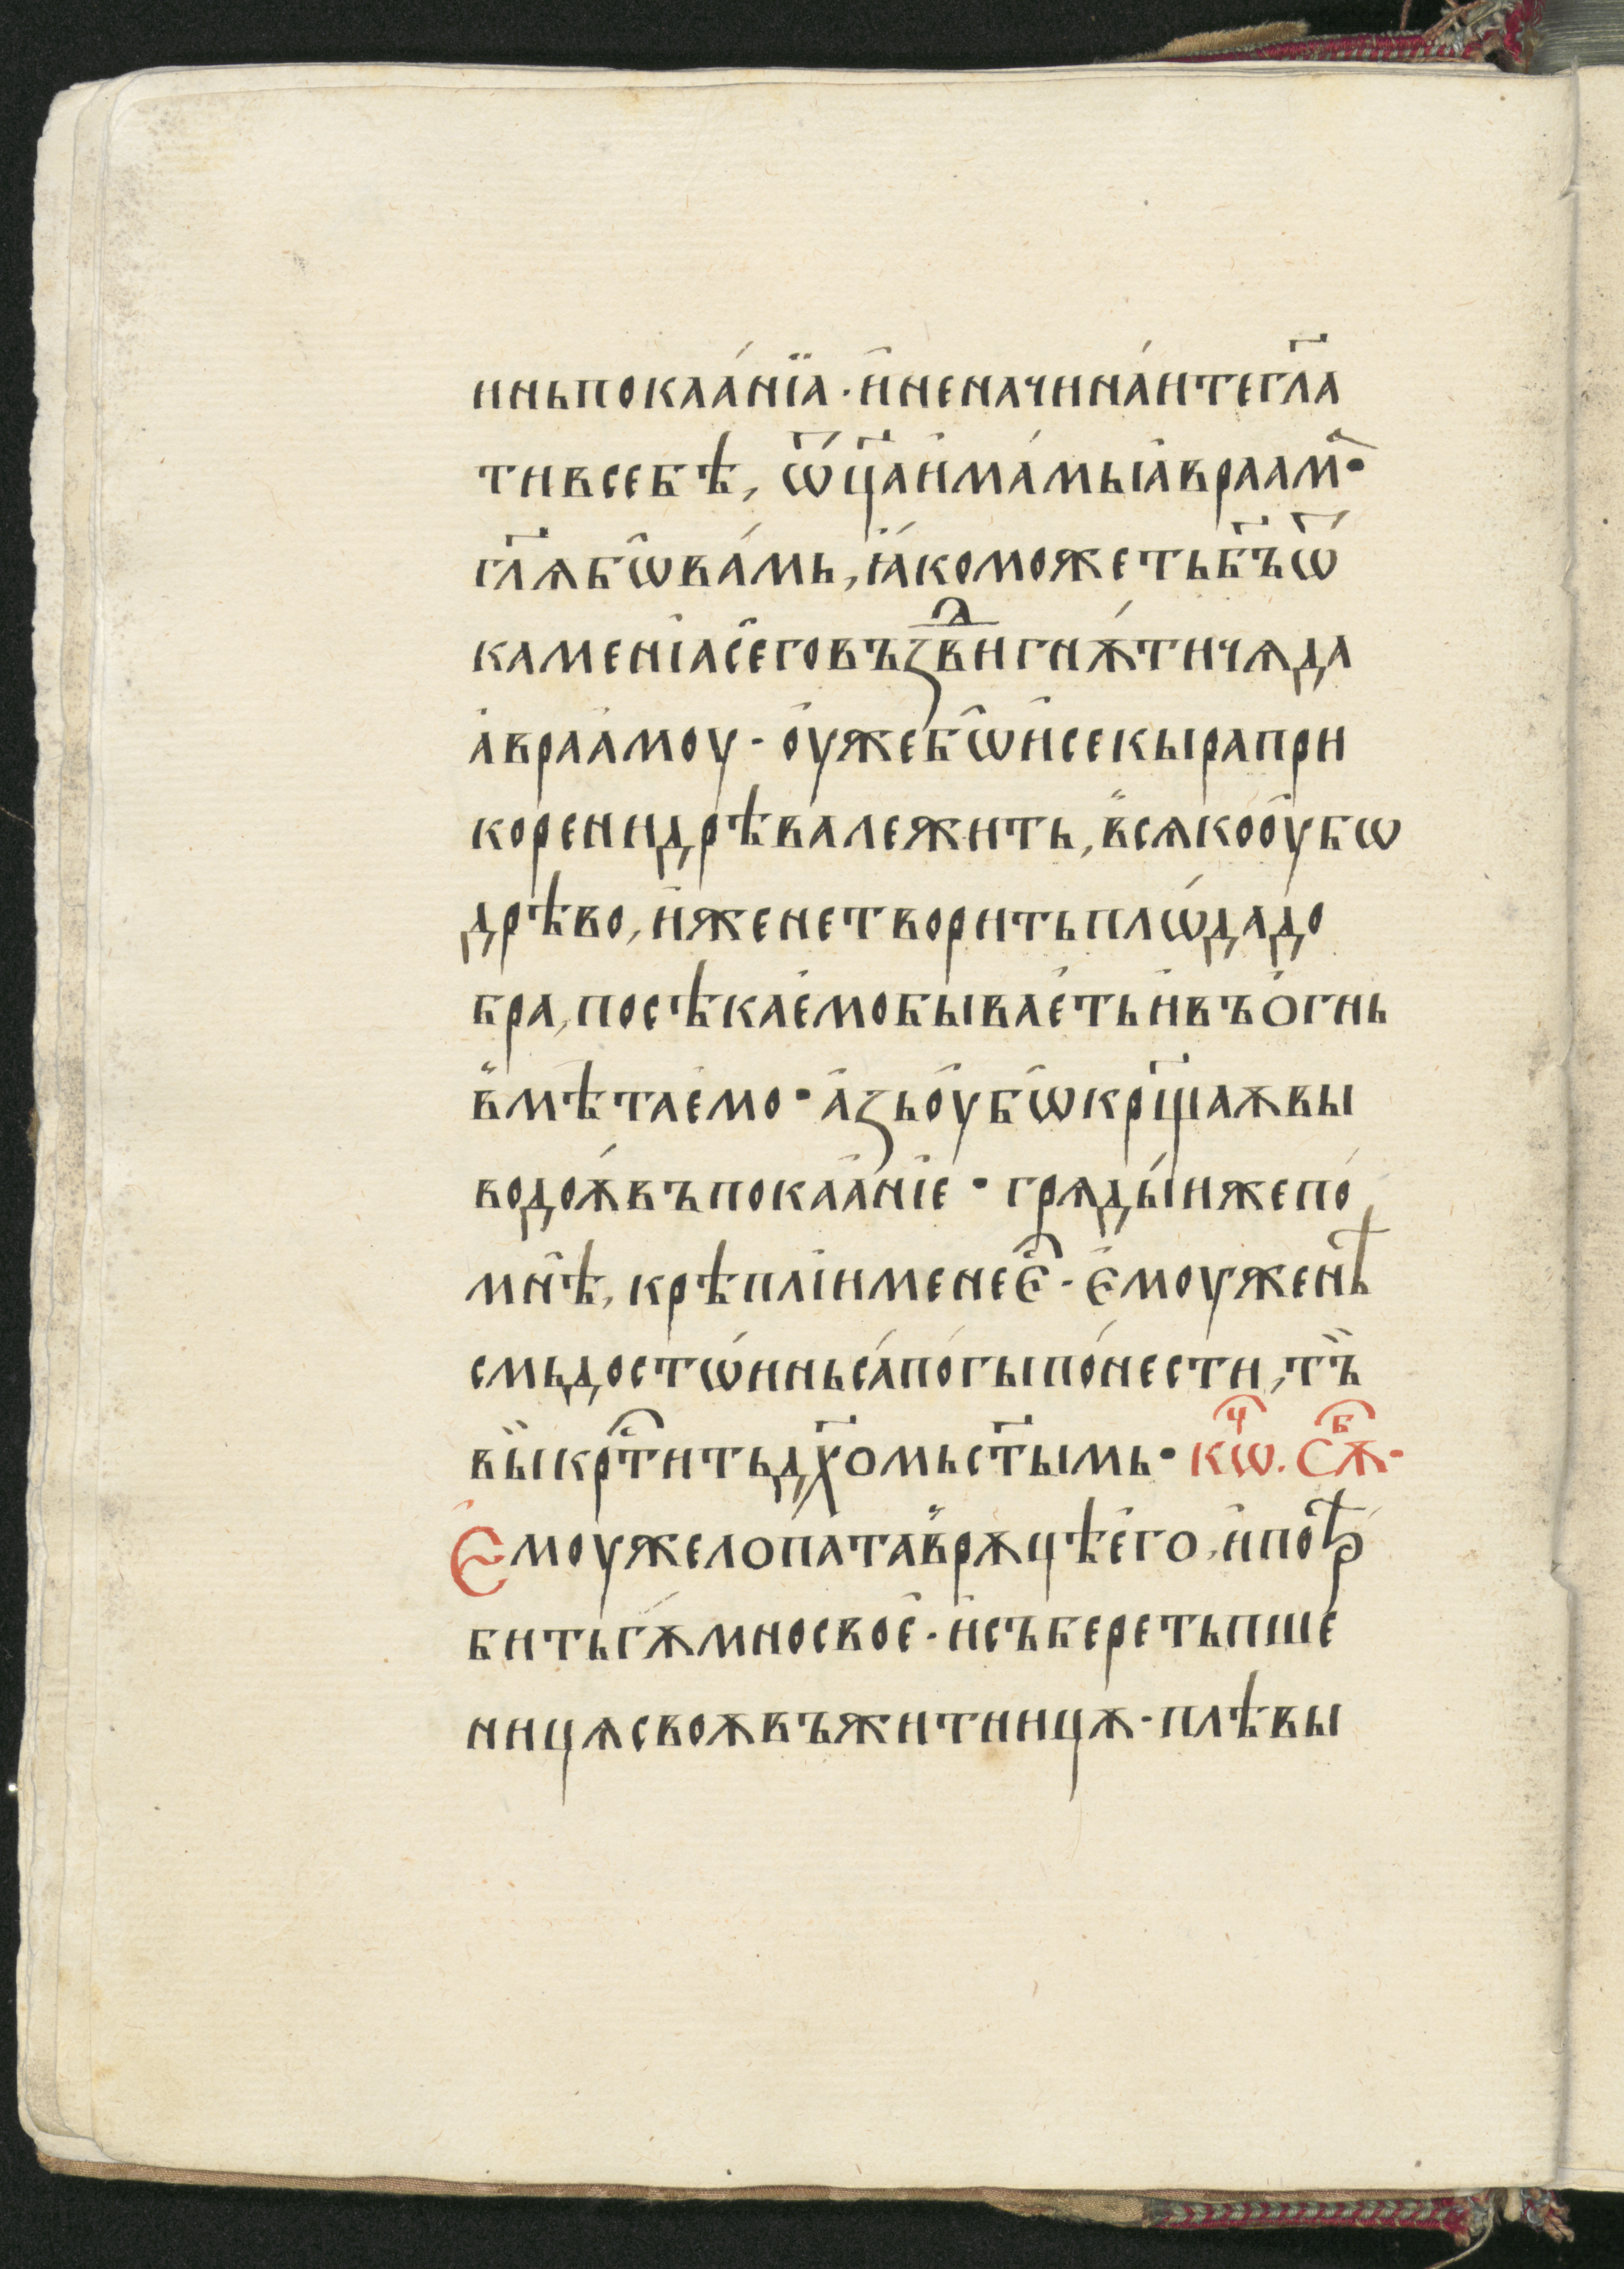 инь покаа́нїа · и҆ не начина́ите гл҃а
ти в себѣ, ѿц҃а и҆ма́мы і҆авраам҃ ·
гл҃ѧ бѡ ва́мь, ꙗ҆́ко можеть б҃ъ ѿ
каменїа сего въꙁвⷣигнѫ́ти чѧда
а҆враа҆моу · оу҆же бѡ и҆ секыра при
корени дрѣва лежить, в҆сѧко оу҆бѡ
дрѣво, и҆же не творить плѡ́да до
бра, посѣкаемо бываеть и҆ въ ѻгнь
в҆мѣтаемо · а҆ꙁь оу҆бѡ кр҃щаѫ вы
водоѫ́ въ покаа҆нїе · грѧды́и же по
мнѣ, крѣплїи мене є҆ⷭ · є҆моуже нѣ
смь достѡ́инь са́погы по́нести, тъ҆
вы҆ крⷭ҇тить дх҃омь ст҃ымь · кѡⷱ҇. сѫⷠ ·
Є҆моуже лопата в҆ рѫцѣ е҆го, и҆ потрѣ
бить гѫ́мно свое · и҆ съберет пше
ницѧ своѫ въ житницѫ · плѣвы